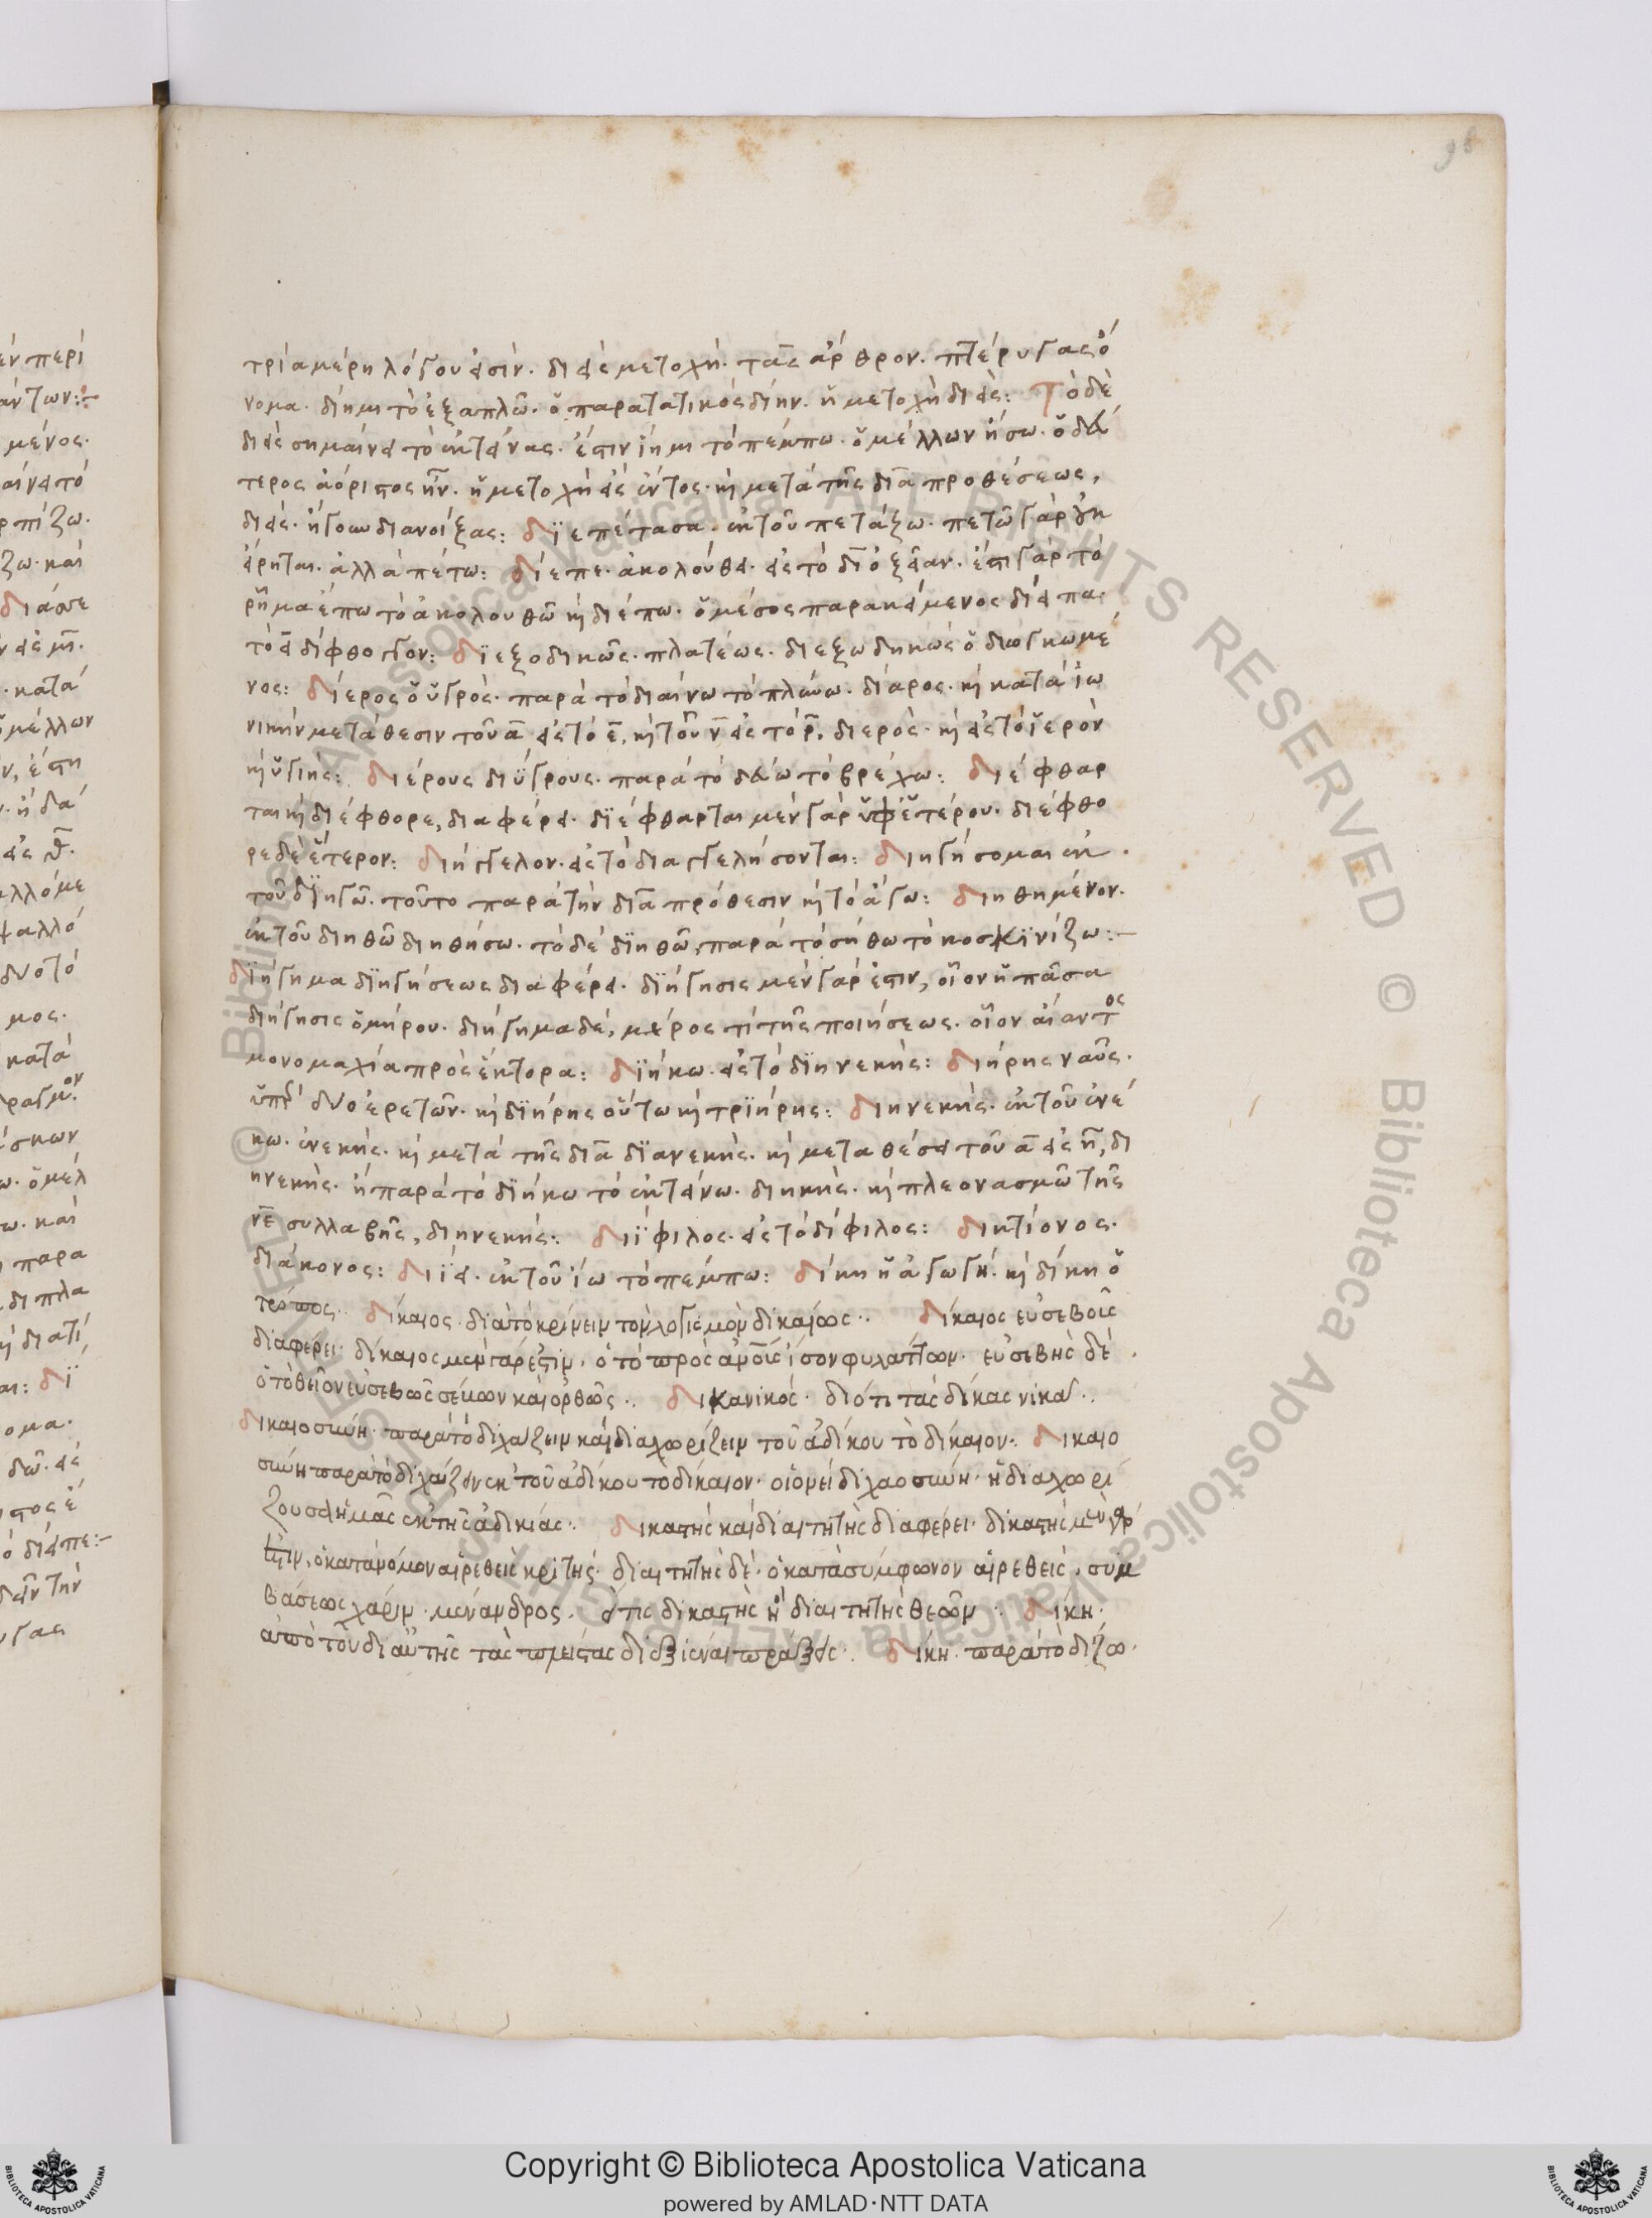 98
τρία μέρη λόγου εἰσίν. διεὶς μετοχή. τὰς ἄρθρον. πτέρυγας ὄ
νομα. δίημι τὸ ἐξαπλῶ. ὁ παρατατικὸς δίην. ἡ μετοχὴ διείς: Τὸ δὲ
διεὶς σημαίνει τὸ ἐκτείνας. ἔστιν ἵημι τὸ πέμπω. ὁ μέλλων ἥσω. ὁ δεύ
τερος ἀόριστος ἧν. ἡ μετοχὴ εἵς ἕντος. καὶ μετὰ τῆς διὰ προθέσεως,
διείς. ἤγουν διανοίξας: διεπέτασα. ἐκ τοῦ πετάζω. πετῶ γὰρ οὐκ
εἴρηται. ἀλλὰ πέτω: δίεπε. ἀκολούθει. εἰς τὸ διοξείαν. ἔστι γὰρ τὸ
ῥῆμα ἕπω τὸ ἀκολουθῶ καὶ διέπω. ὁ μέσος παρακείμενος δίειπα.
τὸ ει δίφθογγον: διεξοδικῶς. πλατέως. διεξωδηκὼς ὁ διωγκωμέ
νος: δίερος ὁ ὑγρός. παρὰ τὸ διαίνω τὸ πλύνω. δίαρος. καὶ κατὰ ἰω
νικὴν μετάθεσιν τοῦ α εἰς τὸ ε, καὶ τοῦ ν εἰς τὸ ρ, διερός. καὶ εἰς τὸ ἱερὸν
καὶ ὑγιής: διέρους διΰγρους. παρὰ τὸ δεύω τὸ βρέχω: διέφθαρ
ται καὶ διέφθορε, διαφέρει. διέφθαρται μὲν γὰρ ὑφ' ἑτέρου. διέφθο
ρε δὲ ἕτερον: διήγγελον. εἰς τὸ διαγγελήσονται: διηγήσομαι ἐκ
τοῦ διηγῶ. τοῦτο παρὰ τὴν διὰ πρόθεσιν καὶ τὸ ἄγω: διηθημένον.
ἐκ τοῦ διηθῶ διηθήσω. τὸ δὲ διηθῶ, παρὰ τὸ σήθω τὸ κοσκινίζω:-
διήγημα διηγήσεως διαφέρει. διήγησις μὲν γάρ ἐστιν, οἷον ἡ πᾶσα
διήγησις ὁμήρου. διήγημα δέ, μέρος τί τῆς ποιήσεως. οἷον αἴαντος
μονομαχία πρὸς ἕκτορα: διήκω. εἰς τὸ διηνεκής: διήρης ναῦς.
ὑπὸ δύο ἐρετῶν. καὶ διήρης οὕτω καὶ τριήρης: διηνεκής. ἐκ τοῦ ἐνέ
κω. ἐνεκής. καὶ μετὰ τῆς διὰ διανεκής. καὶ μεταθέσει τοῦ α εἰς η, δι
ηνεκής. ἢ παρὰ τὸ διήκω τὸ ἐκτείνω. διηκής. καὶ πλεονασμῶ τῆς
νε συλλαβῆς, διηνεκής: διΐφιλος. εἰς τὸ δίφιλος: διητίονος.
διάκονος: διΐει. ἐκ τοῦ ἵω τὸ πέμπω: δίκη ἡ ἀγωγή. καὶ δίκη ὁ
τρόπος. δίκαιος. διὰ τὸ κρίνειν τὸν λογισμὸν δικαίως. δίκαιος εὐσεβοῦς
διαφέρει. δίκαιος μὲν γάρ ἐστιν, ὁ τὸ πρὸς ἀνοῦς ἴσον φυλάττων. εὐσεβὴς δὲ
ὁ τὸ θεῖον εὐσεβῶς σέβων καὶ ὀρθῶς. δικανικός. διότι τὰς δίκας νικᾶ.
δικαιοσύνη παρὰ τὸ διχάζειν καὶ διαχωρίζειν τοῦ ἀδίκου τὸ δίκαιον. δικαιο
σύνη παρὰ τὸ διχάζειν ἐκ τοῦ ἀδίκου τὸ δίκαιον. οἱονεὶ διχαοσύνη. ἡ διαχωρί
ζουσα ἡμᾶς ἐκ τῆς ἀδικίας. δικαστὴς καὶ διαιτητὴς διαφέρει. δικαστὴς μὲν γάρ
ἐστιν, ὁ κατὰ νόμον αἱρεθεὶς κριτής. διαιτητὴς δὲ. ὁ κατὰ σύμφωνον αἱρεθεὶς. συμ
βάσεως χάριν. μένανδρος. εἴ τις δικαστὴς ἢ διαιτητὴς θεῶν. δίκη.
ἀπὸ τοῦ δι αὐτῆς τὰς πλείστας διεξιέναι πράξεις. δίκη. παρὰ τὸ δίζω.
Copyright © Biblioteca Apostolica Vaticana
powered by AMLAD·NTT DATA